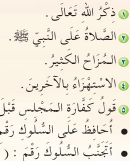 ١ ذِكْرُ اللهِ تَعَالَى.
٢ الصَّلَاةُ عَلَى النَّبِيِّ ﷺ.
٣ الْمُزَاحُ الْكَثِيرُ.
٤ الِاسْتِهْزَاءُ بِالْآخَرِينَ.
٥ قَوْلُ كَفَّارَةِ الْمَجْلِسِ قَبْلَ
• أُحَافِظُ عَلَى السُّلُوكِ رَقْمِ
• أَجْتَنِبُ السُّلُوكَ رَقْمَ : (